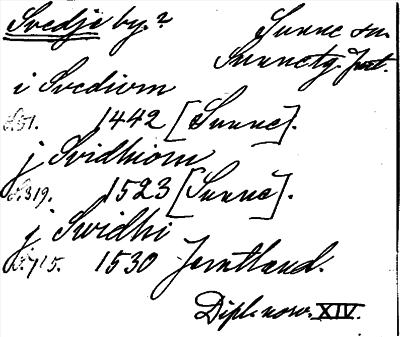 Svedje by.?
Sunne sn.
Sunne tg. Jmt.
i Svediom
S. 51. 1442 [Sunne].
j Svidhiom
S. 319. 1523 [Sunne].
j Swidhi
S. 715. 1530 Jemtland.
Dipl. norv. XIV.